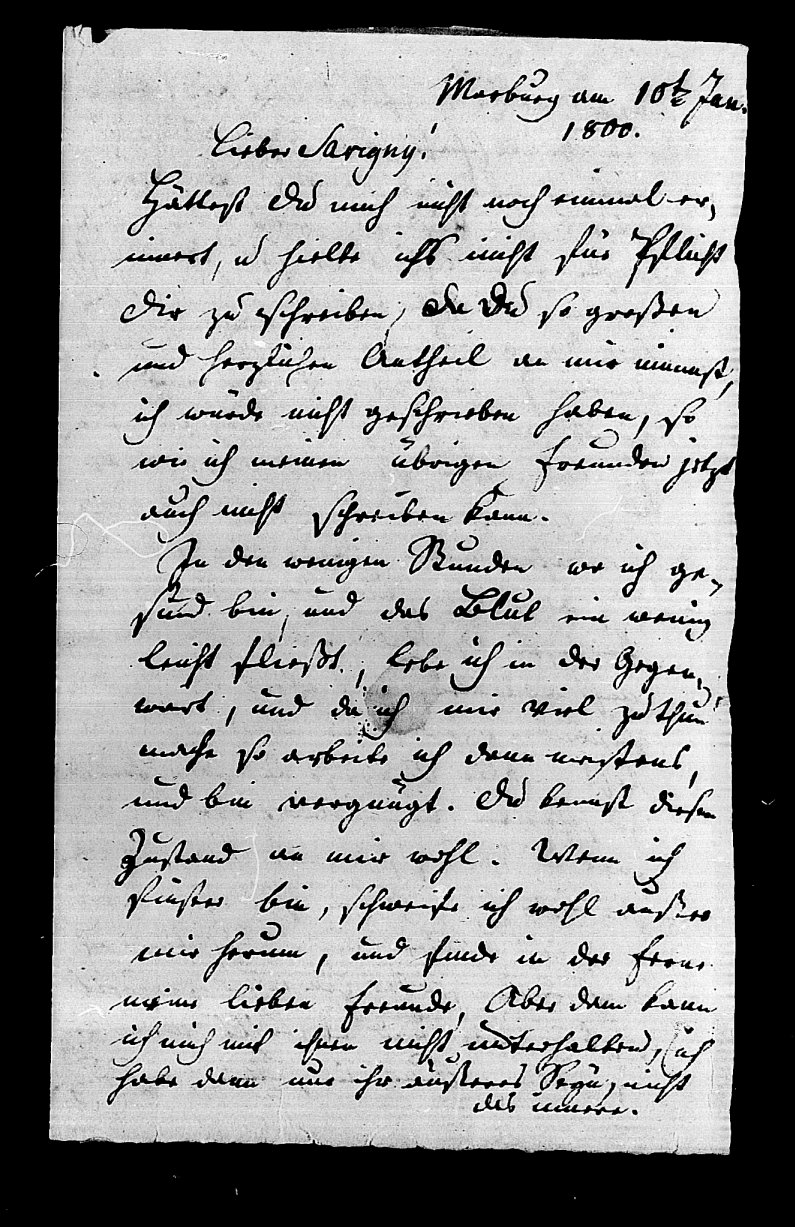 Marburg am 10t Jan.
1800.
Lieber Savigny!
Hättest Du mich nicht noch einmal er-
innert, u hielte ichs nicht für Pflicht
Dir zu schreiben, da Du so großen
und herzlichen Antheil an mir nimmst,
ich würde nicht geschrieben haben, so
wie ich meinen übrigen Freunden jetzt
auch nicht schreiben kann.
In den wenigen Stunden wo ich ge-
sund bin, und das Blut ein wenig
leicht fließt, lebe ich in der Gegen-
wart, und da ich mir viel zu thun
mache so arbeite ich dann meistens,
und bin vergnügt. Du kennst diesen
Zustand an mir wohl. Wenn ich
finster bin, schweife ich wohl außer
mir herum, und finde in der Ferne
meine lieben Freunde, Aber dann kann
ich mich mit ihnen nicht unterhalten, ich
habe dann nur ihr äußeres Seyn, nicht
das innere.